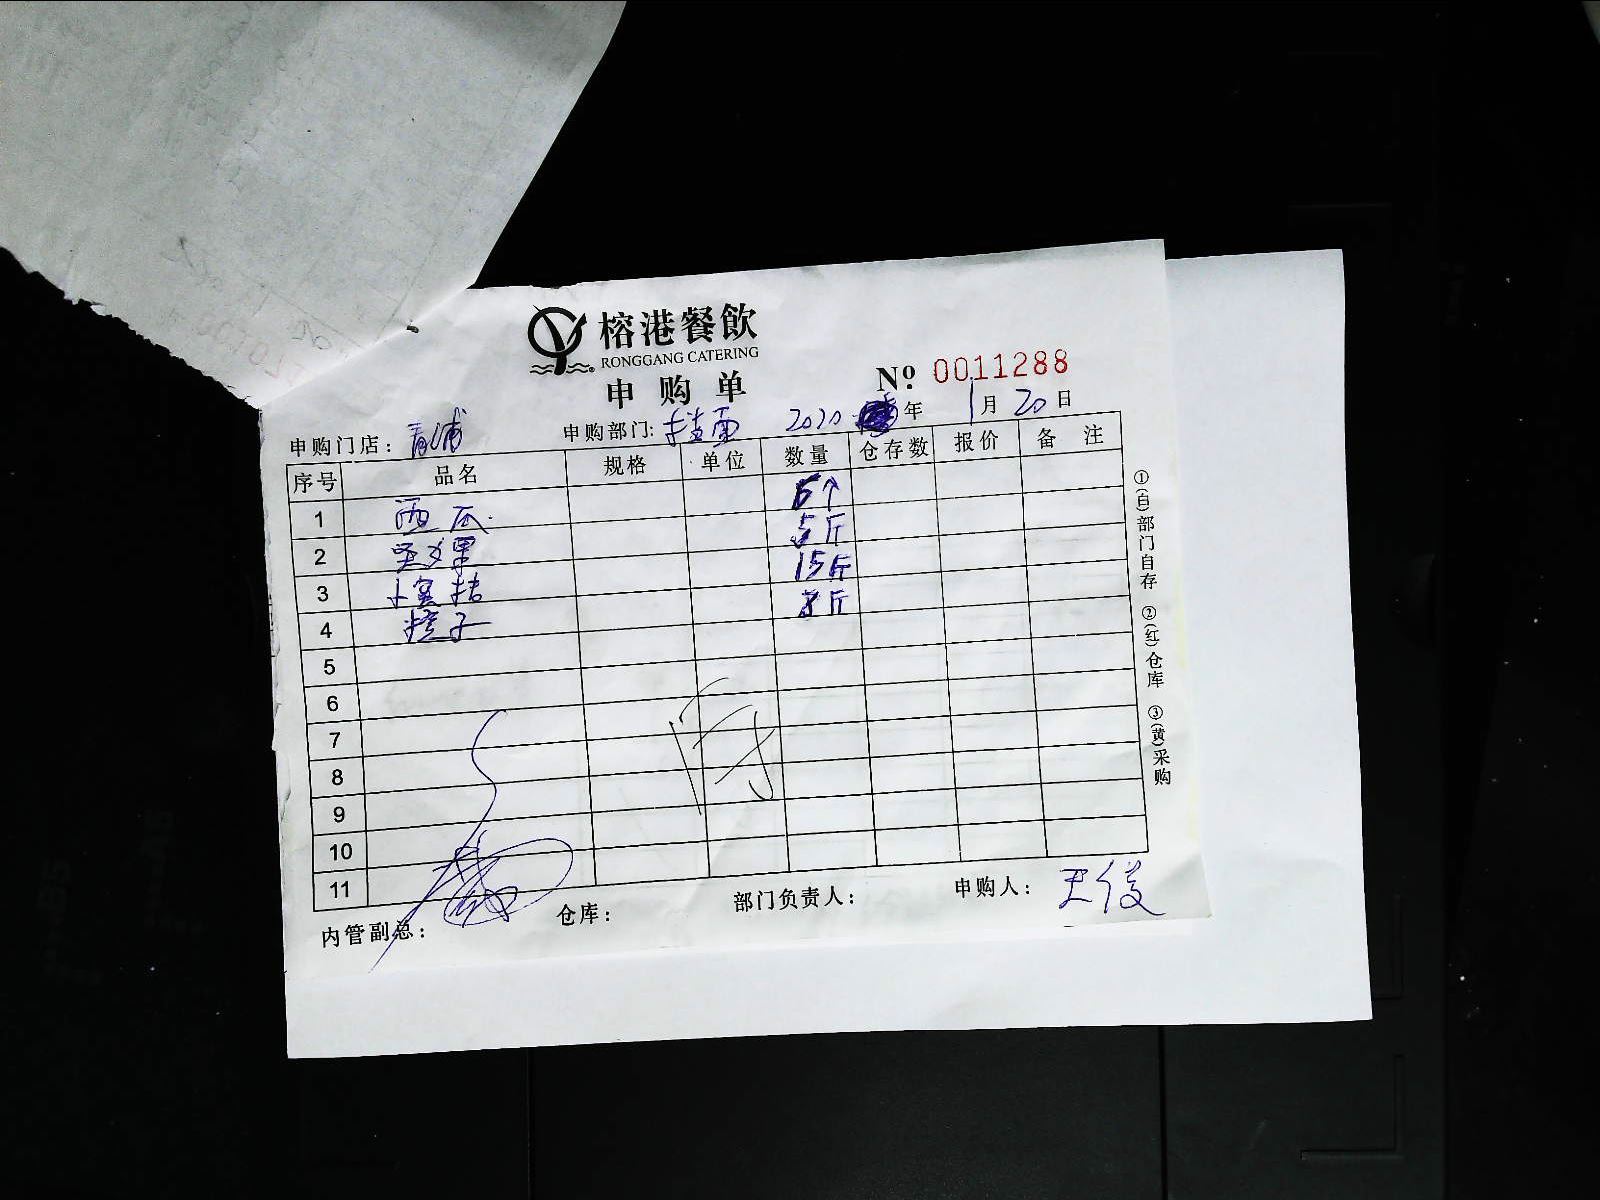 榕港餐飲
RONGGANG CATERING
申购单
No. 0011288
申购门店：青浦 申购部门：楼面 2020 年 1月20日
序号 品名 规格 单位 数量 仓存数 报价 备注
1 西瓜 6个
2 圣女果 5斤
3 小蜜桔 15斤
4 橙子 8斤
5
6
7
8
9
10
11
内管副总： 仓库： 部门负责人： 申购人：王俊
①(白)部门自存 ②(红)仓库 ③(黄)采购